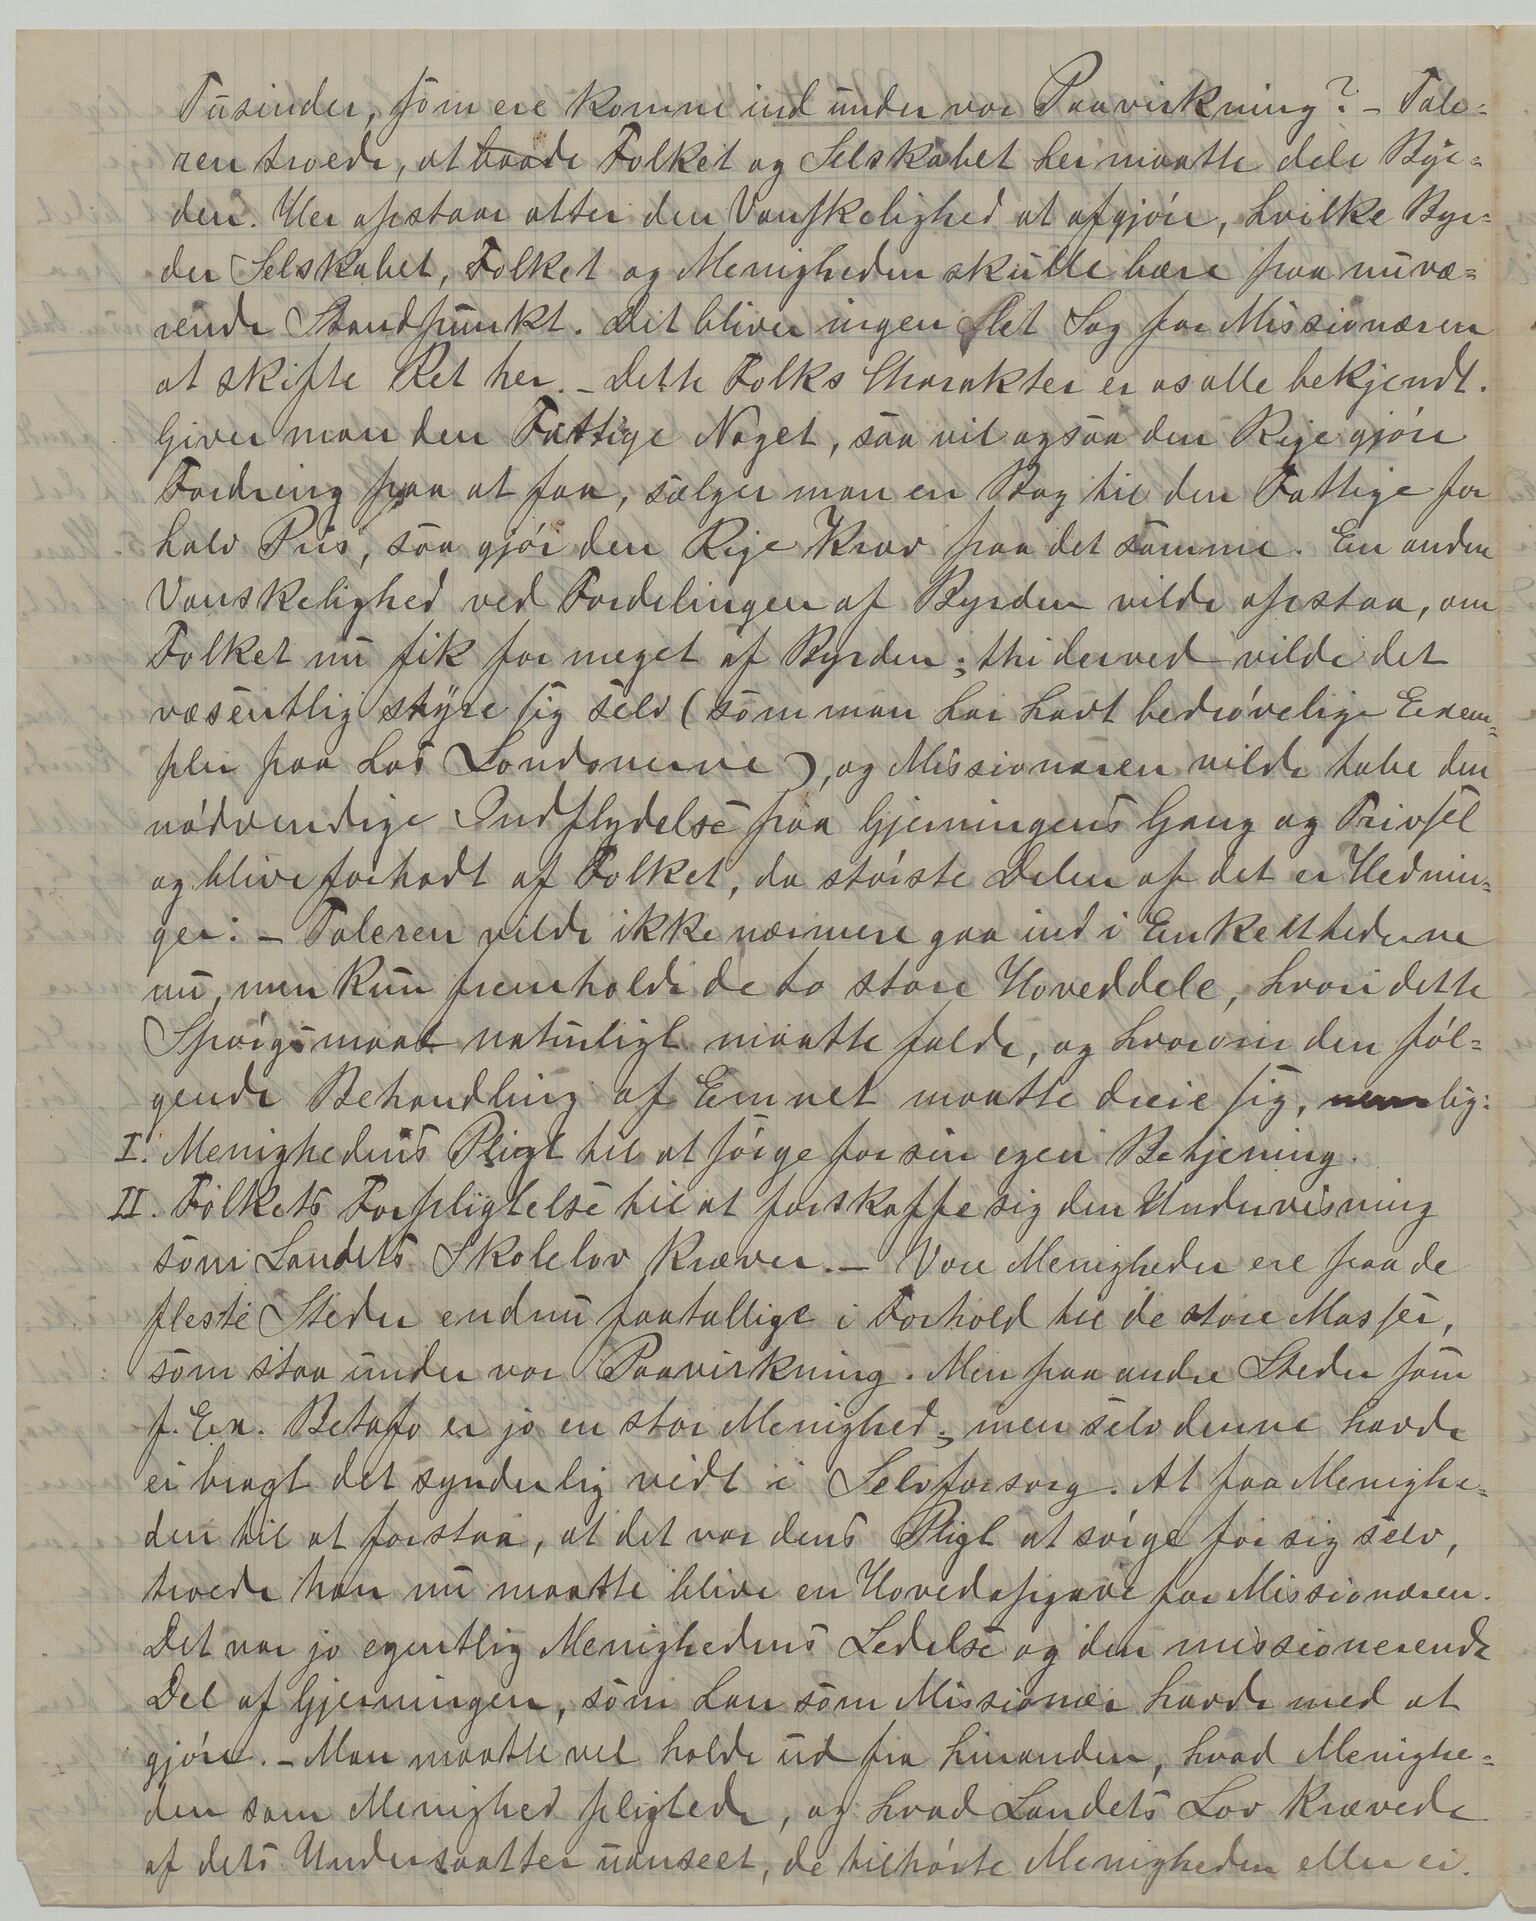 Tusinder, som ere komne ind under vor Paavirkning? – Tale-
ren troede, at baade Folket og Selskabet her maatte dele Byr-
den. Her opstaar atter den Vanskelighed at afgjøre, hvilke Byr-
der Selskabet, Folket og Menigheden skulle bære paa nuvæ-
rende Standpunkt. Det bliver ingen let Sag for Missionæren
at skifte Ret her. – Dette Folks Charakter er os alle bekjendt.
Giver man den Fattige Noget, saa vil ogsaa den Rige gjøre
Fordring paa at faa, sælger man en Bog til den Fattige for
halv Pris, saa gjør den Rige Krav paa det samme. En anden
Vanskelighed ved Fordelingen af Byrden vilde opstaa, om
Folket nu fik for meget af Byrden; thi derved vilde det
væsentlig styre sig selv (som man har havt bedrøvelige Exem-
pler paa hos Londonerne), og Missionæren vilde tabe den
nødvendige Indflydelse paa Gjerningens Gang og Trivsel
og blive forhadt af Folket, da største Delen af det er Hednin-
ger: – Taleren vilde ikke nærmere gaa ind i Enkelthederne
nu, men kun fremholde de to store Hoveddele, hvori dette
Spørgsmaal naturligt maatte falde, og hvorom den føl-
gende Behandling af Emnet maatte dreie sig, nemlig:
I. Menighedens Pligt til at sørge for sin egen Betjening.
II. Folkets Forpligtelse til at forskaffe sig den Undervisning
som Landets Skolelov kræver. – Vore Menigheder ere paa de
fleste Steder endnu faatallige i Forhold til de store Masser,
som staa under vor Paavirkning. Men paa andre Steder som
f. Ex. Betafo er jo en stor Menighed; men selv denne havde
ei bragt det synderlig vidt i Selvforsorg. At faa Menighe-
den til at forstaa, at det var dens Pligt at sørge for sig selv,
troede han nu maatte blive en Hovedopgave for Missionæren.
Det var jo egentlig Menighedens Ledelse og den missionerende
Del af Gjerningen, som han som Missionær havde med at
gjøre. – Man maatte vel holde ud fra hinanden, hvad Menighe-
den som Menighed pligtede, og hvad Landets Lov krævede
af dets Undersaatter uanseet, de tilhørte Menigheden eller ei.